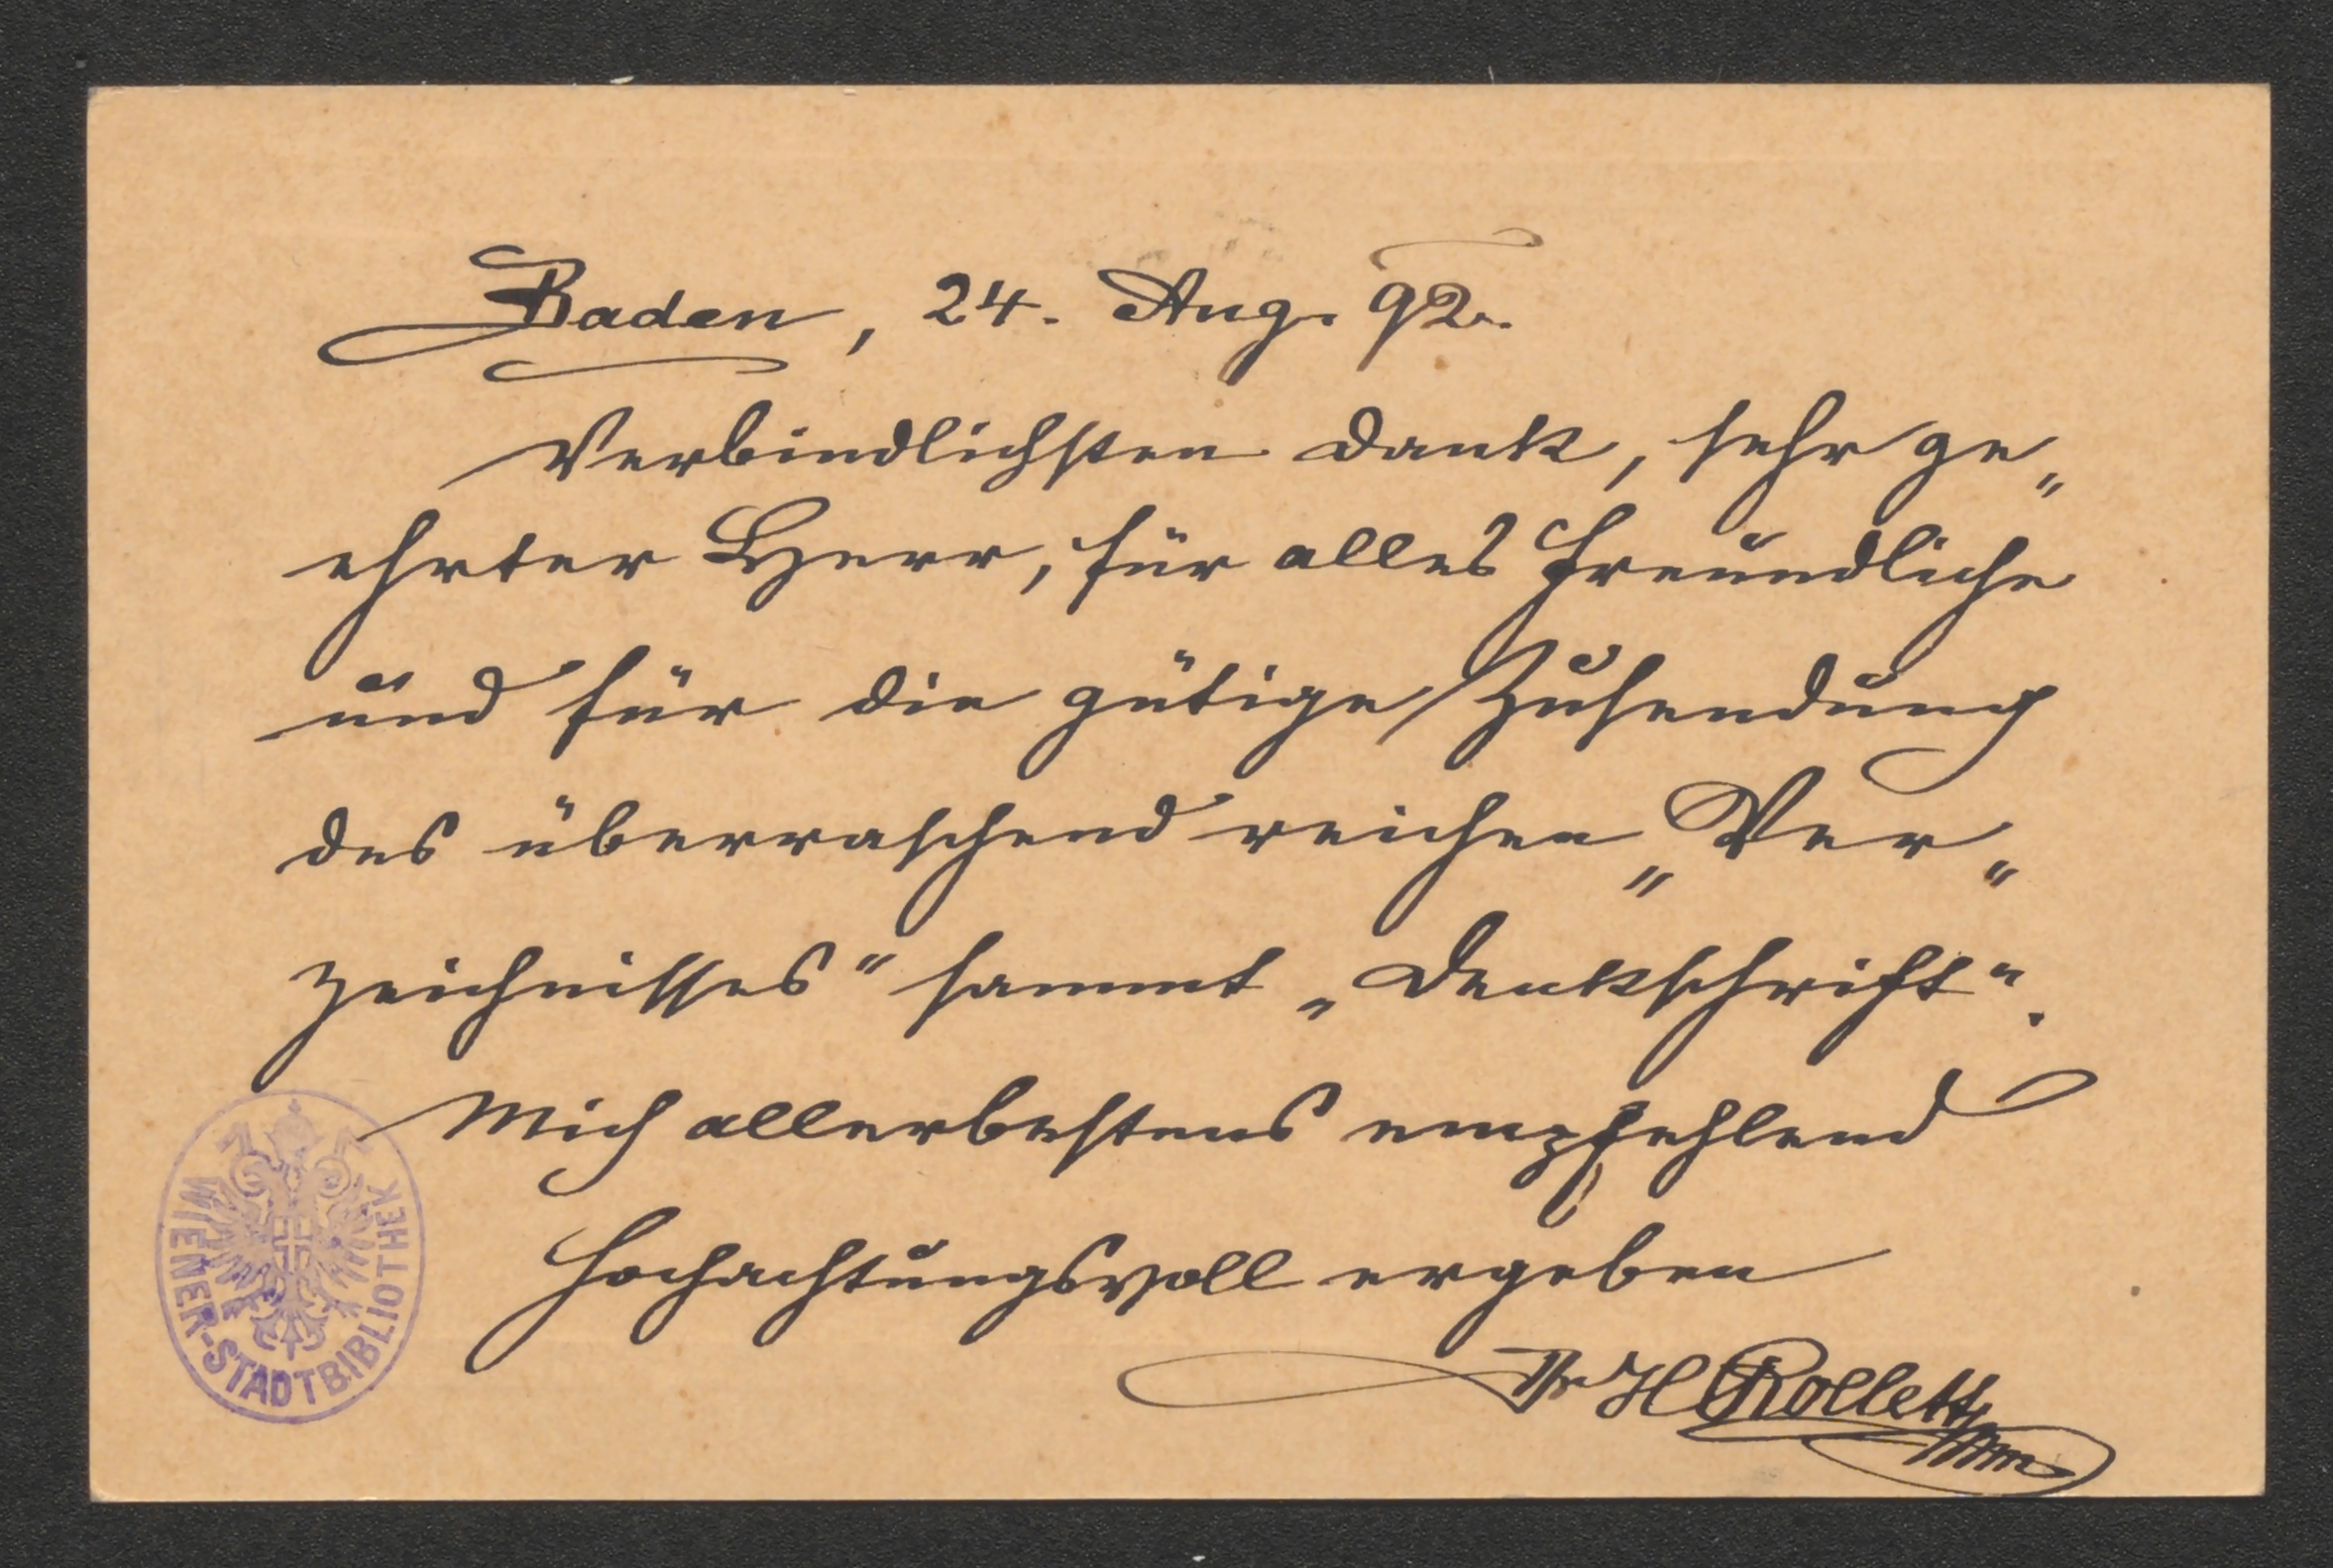 Baden, 24. Aug. 92.
Verbindlichsten Dank, sehr ge„
ehrter Herr, für alles Freundliche
und für die gütige Zusendung
des überraschend reichen „Ver„
zeichnisses“ sammt „Denkschrift“.
Mich allerbestens empfehlend
hochachtungsvoll ergeben
Dr HRollett
WIENER-STADTBIBLIOTHEK